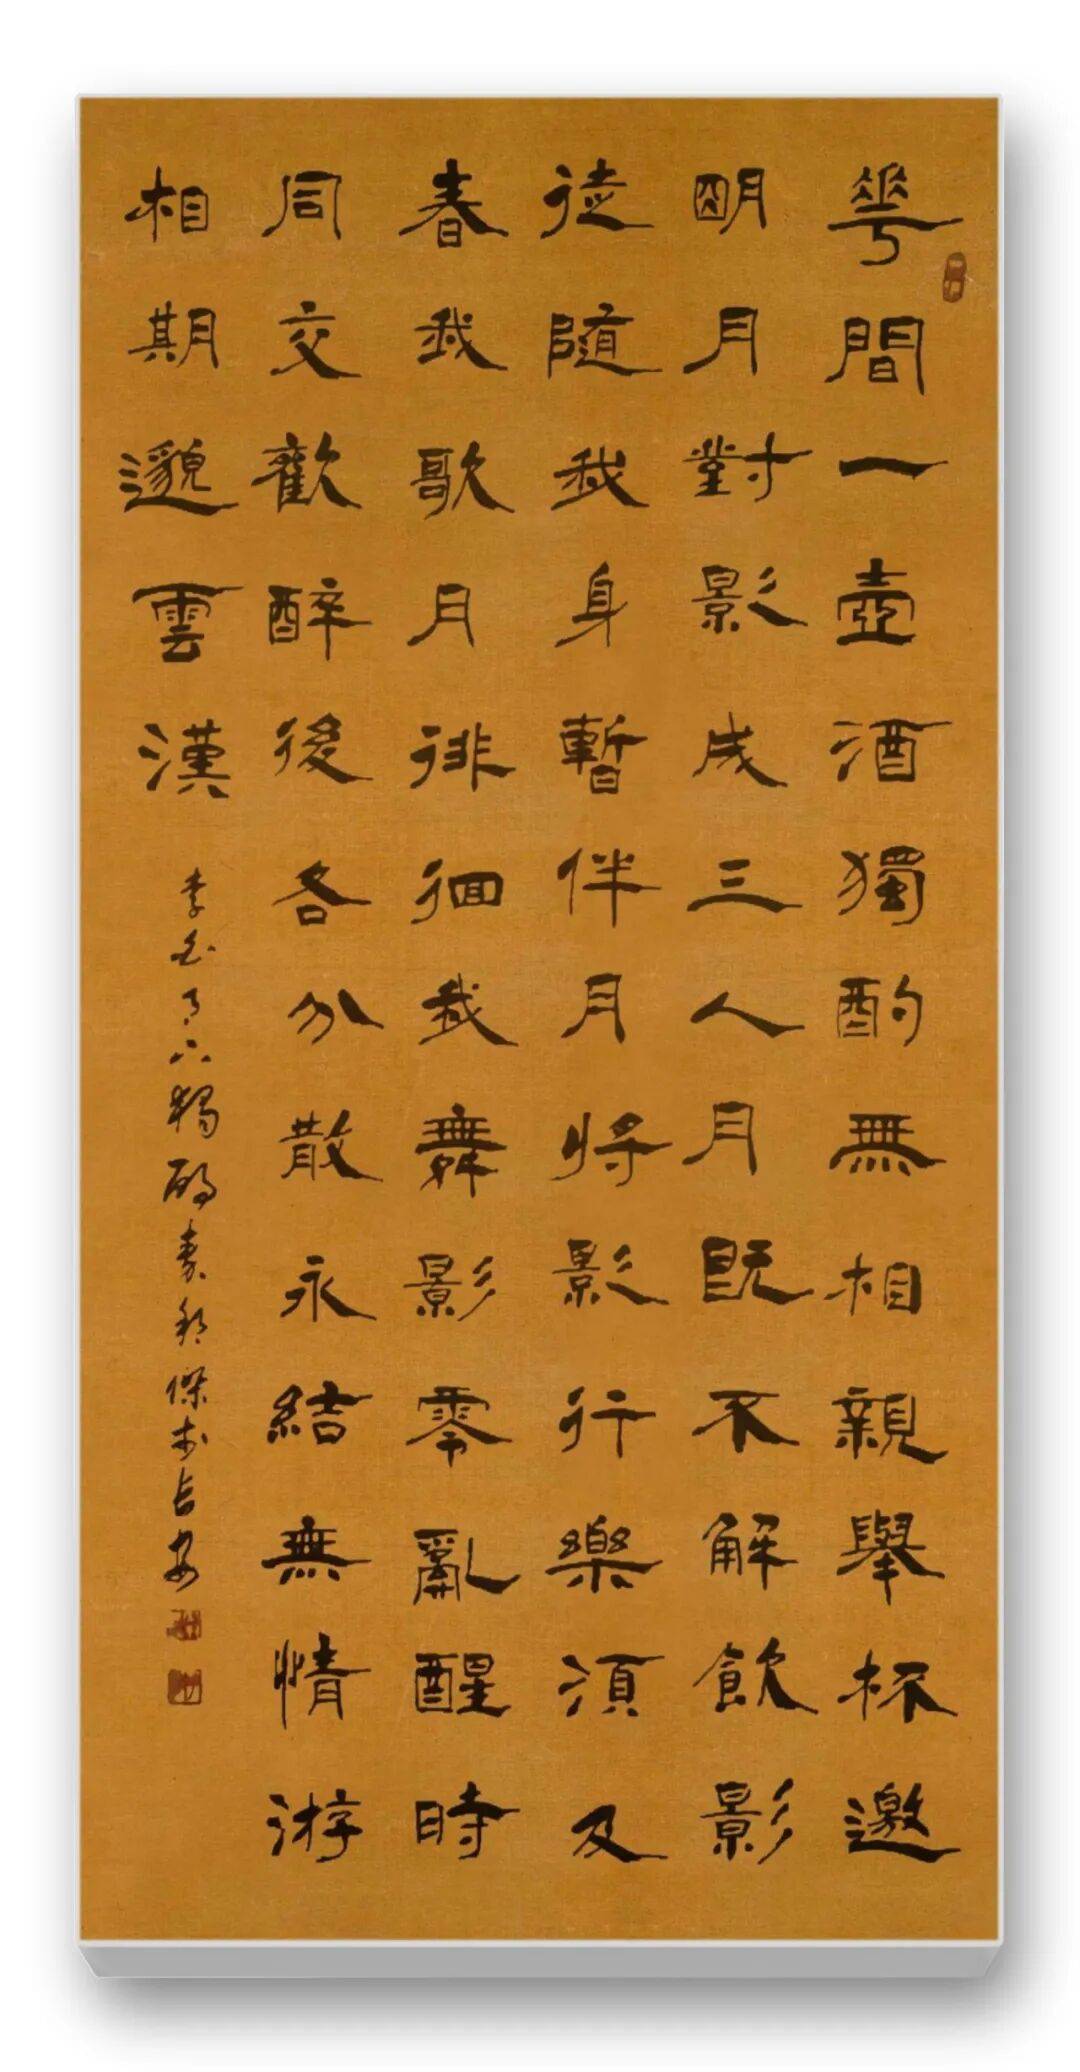 花間一壺酒獨酌無相親舉杯邀
明月對影成三人月既不解飲影
徒隨我身暫伴月將影行樂須及
春我歌月徘徊我舞影零亂醒時
同交歡醉後各分散永結無情游
相期邈雲漢
李白月下獨酌袁邦傑於長安